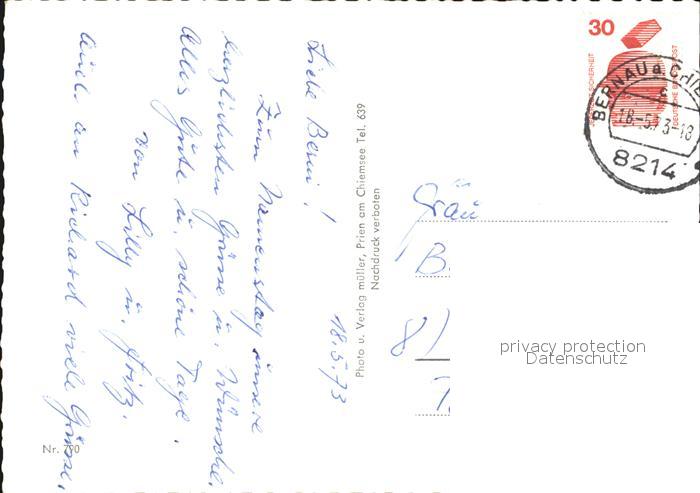 18.5.73
Liebe Berni!
Zum Namenstag unsere
herzlichsten Grüsse u. Wünsche,
Alles Gute u. schöne Tage.
von Lilly u. Fritz.
Auch an Richard viele Grüsse.
Photo u. Verlag müller, Prien am Chiemsee Tel. 639
Nachdruck verboten
30
JEDERZEIT SICHERHEIT
DEUTSCHE BUNDESPOST
BERNAU a. CHIE
c
18.-5.73-18
8214
B.
8
privacy protection
Datenschutz
Nr. 790